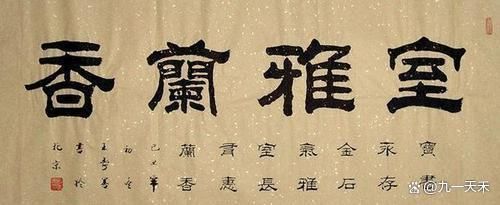 室雅蘭香
寶書
永存
金石
氣雅
室長
惠
蘭香
己丑年
初冬
書於
北京
九一天禾